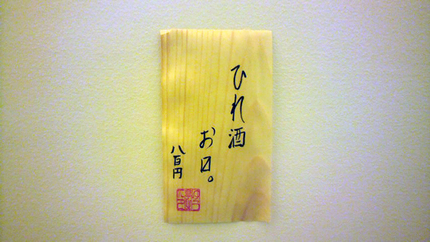 ひれ酒
お日。
八百円